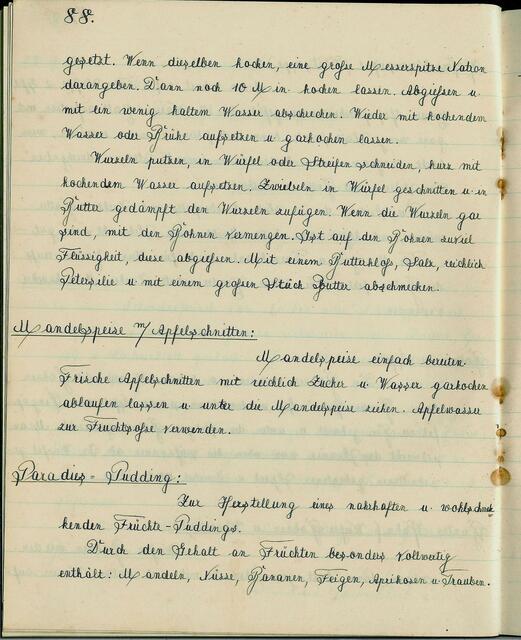 88.
gesetzt. Wenn dieselben kochen, eine große Messerspitze Natron
darangeben. Dann noch 10 Min. kochen lassen. Abgießen u.
mit ein wenig kaltem Wasser abschrecken. Wieder mit kochendem
Wasser oder Brühe aufsetzen u garkochen lassen.
Wurzeln putzen, in Würfel oder Streifen schneiden, kurz mit
kochendem Wasser aufsetzen. Zwiebeln in Würfel geschnitten u in
Butter gedämpft den Wurzeln zufügen. Wenn die Wurzeln gar
sind, mit den Bohnen vermengen. Ist auf den Bohnen zuviel
Flüssigkeit, diese abgießen. Mit einem Buttakloß, Salz, reichlich
Petersilie u mit einem großen Stück Butter abschmecken.
Mandelspeise m/ Apfelschnitten:
Mandelspeise einfach bereiten.
Frische Apfelschnitten mit reichlich Zucker u. Wasser garkochen
ablaufen lassen u. unter die Mandelspeise ziehen. Apfelwasser
zur Fruchtsoße verwenden.
Paradies-Pudding:
Zur Herstellung eines nahrhaften u. wohlschmek
kenden Früchte-Puddings.
Durch den Gehalt an Früchten besonders vollwertig
enthält: Mandeln, Nüsse, Bananen, Feigen, Aprikosen u. Trauben.